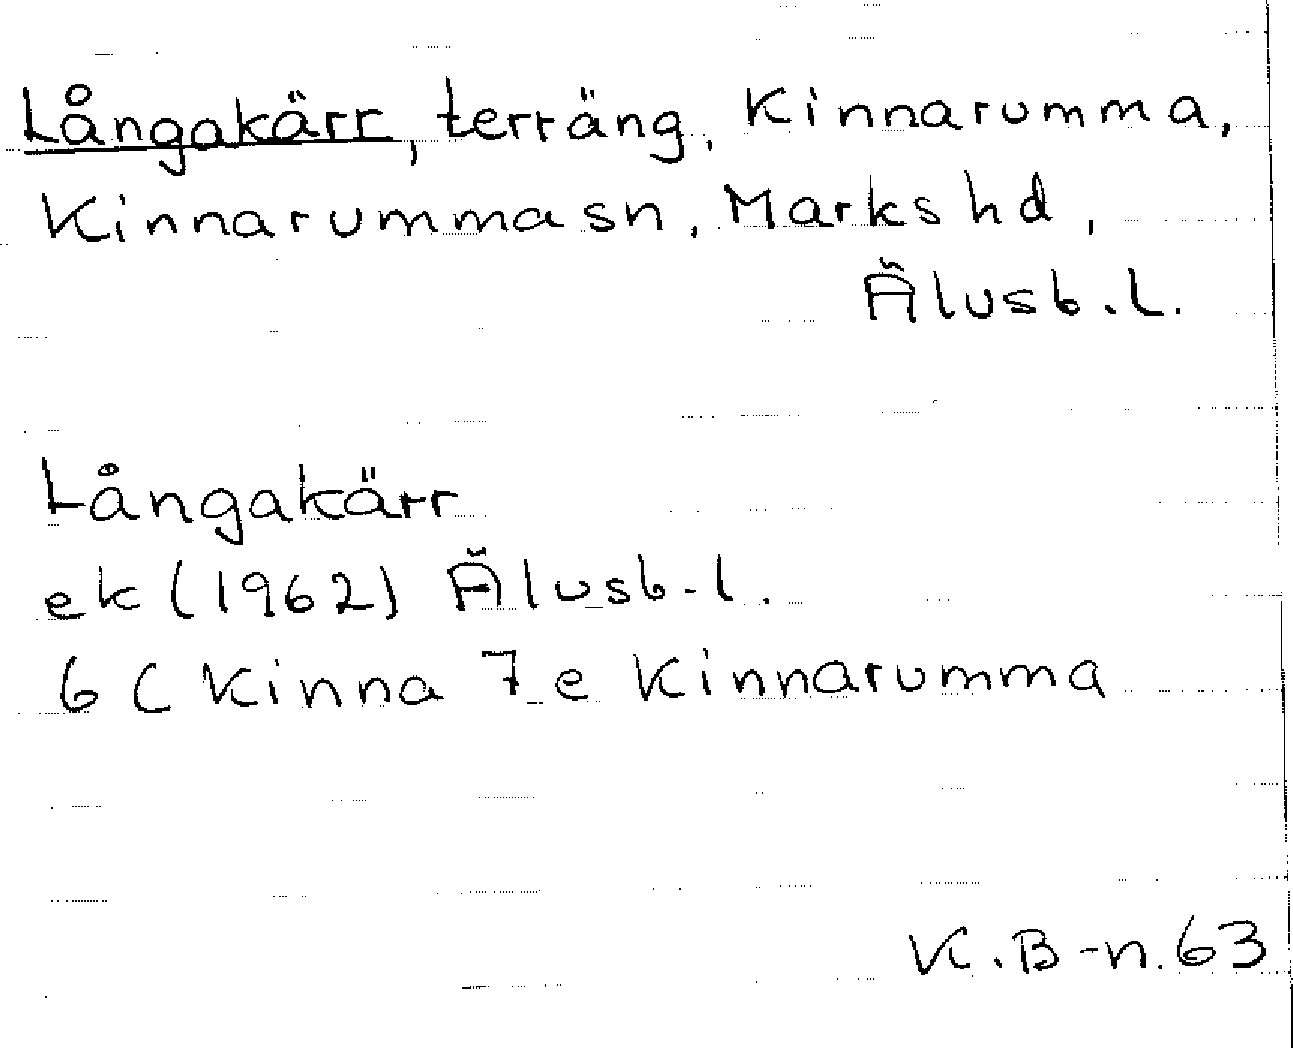 Långakärr, terräng, Kinnarumma,
Kinnarumma sn, Marks hd,
Älvsb. l.
Långakärr
ek (1962) Älvsb. l.
6 C Kinna 7 e Kinnarumma
K. B-n. 63